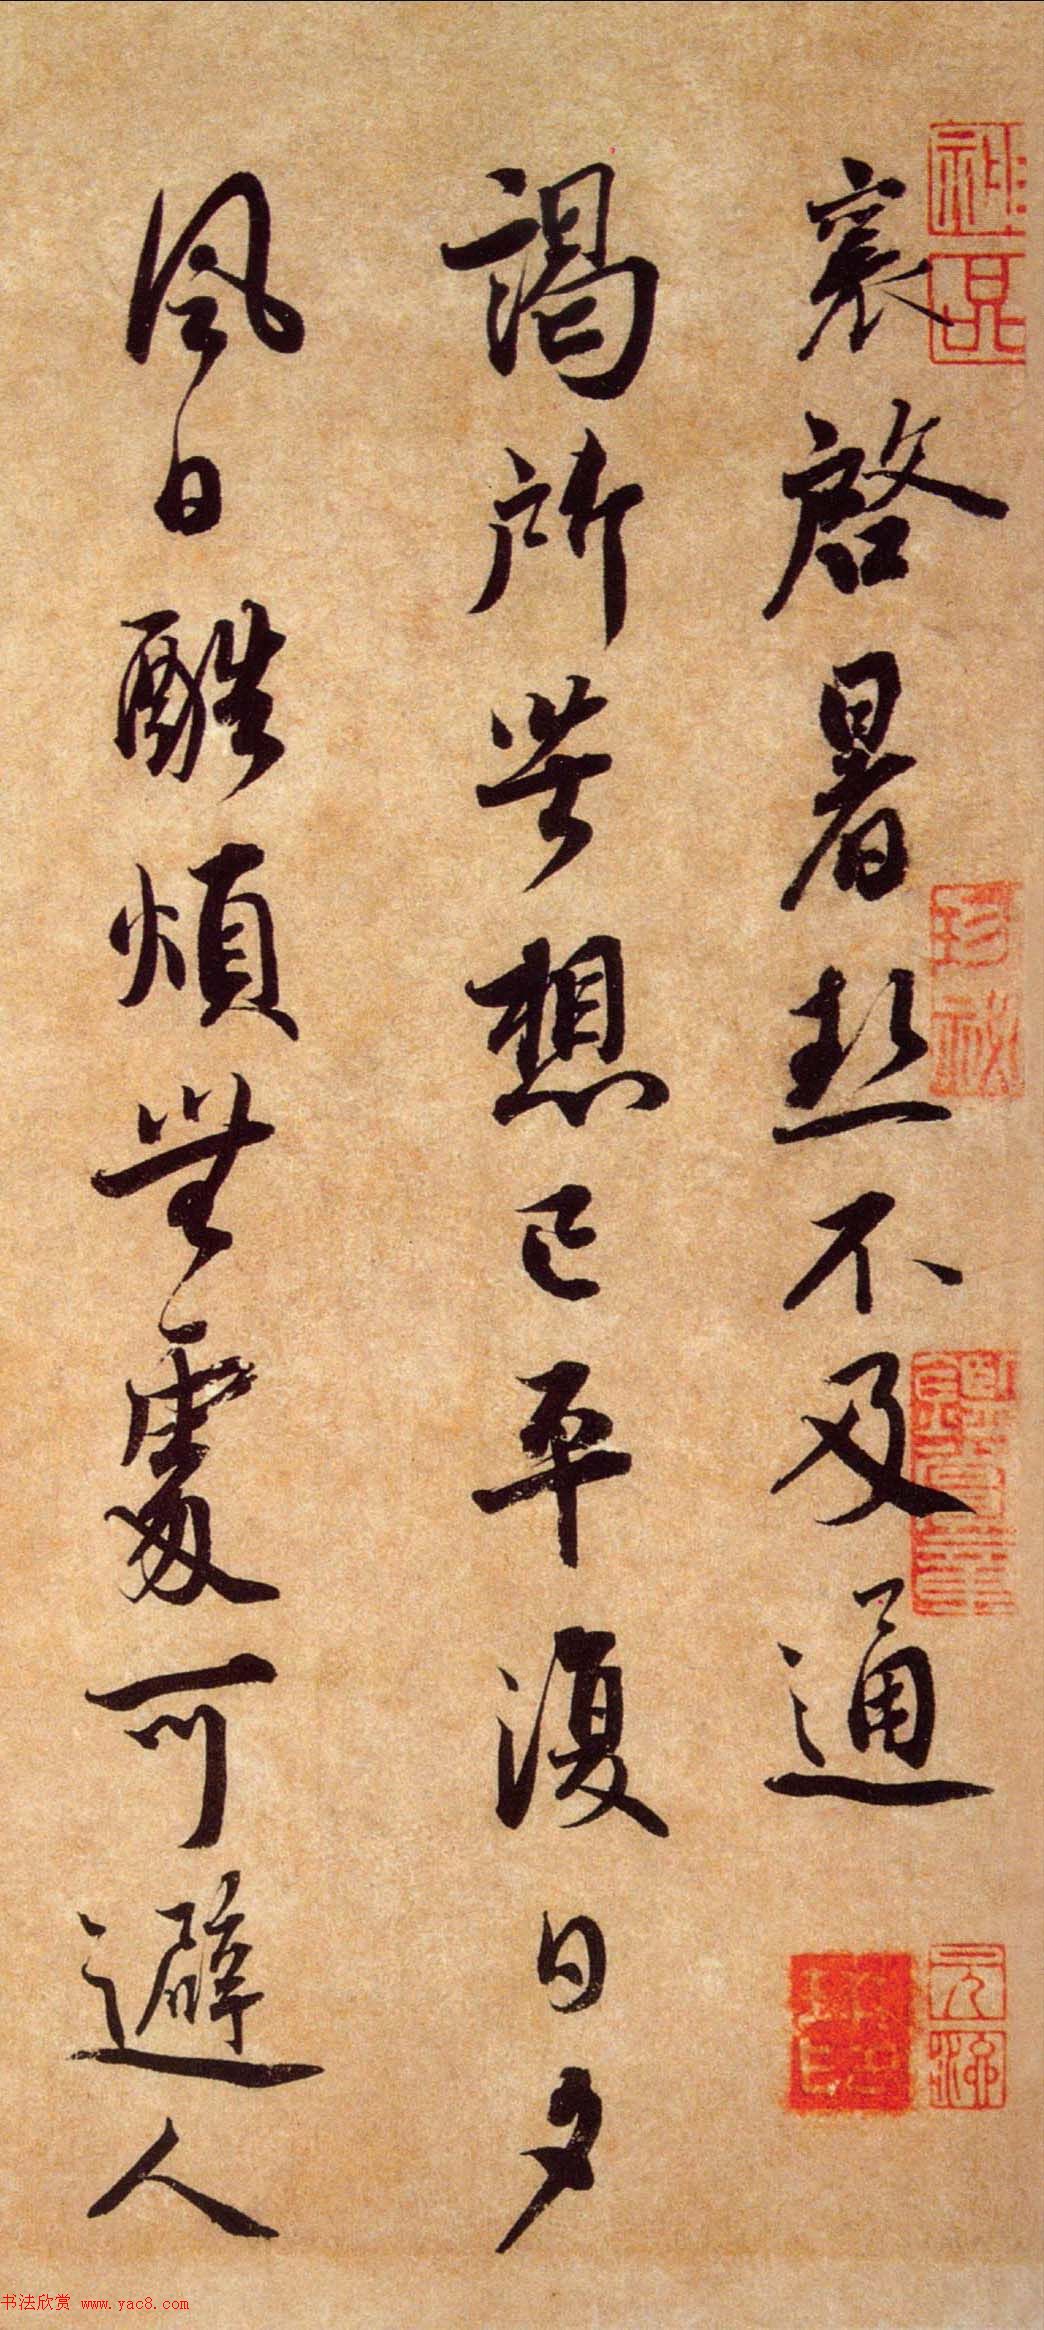 襄啓暑熱不及通
謁所苦想已平復日夕
風日酷煩無處可避人
书法欣赏 www.yac8.com